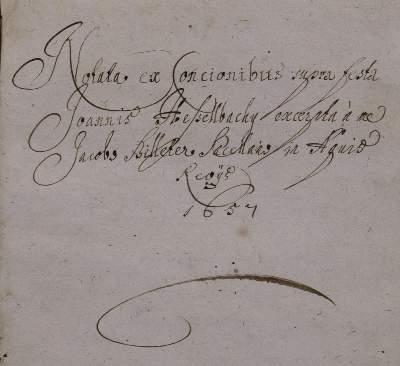 Notata ex Concionibus supra festa
Joannis Hessellbachy excerpta à me
Jacobo in Aquis
Regÿs
1657